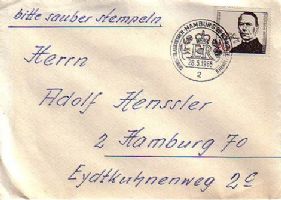 bitte sauber stempeln
HAMBURG
28.5.1965
2
Herrn
Adolf Henssler
2 Hamburg 70
Eydtkuhnenweg 2c